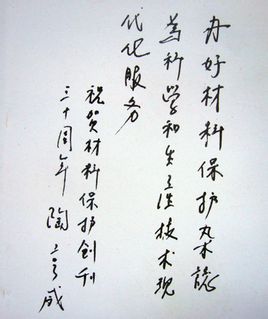 办好材料保护杂誌
為科学和生产技术现
代化服务
祝贺材料保护创刊
三十周年 陶亨咸